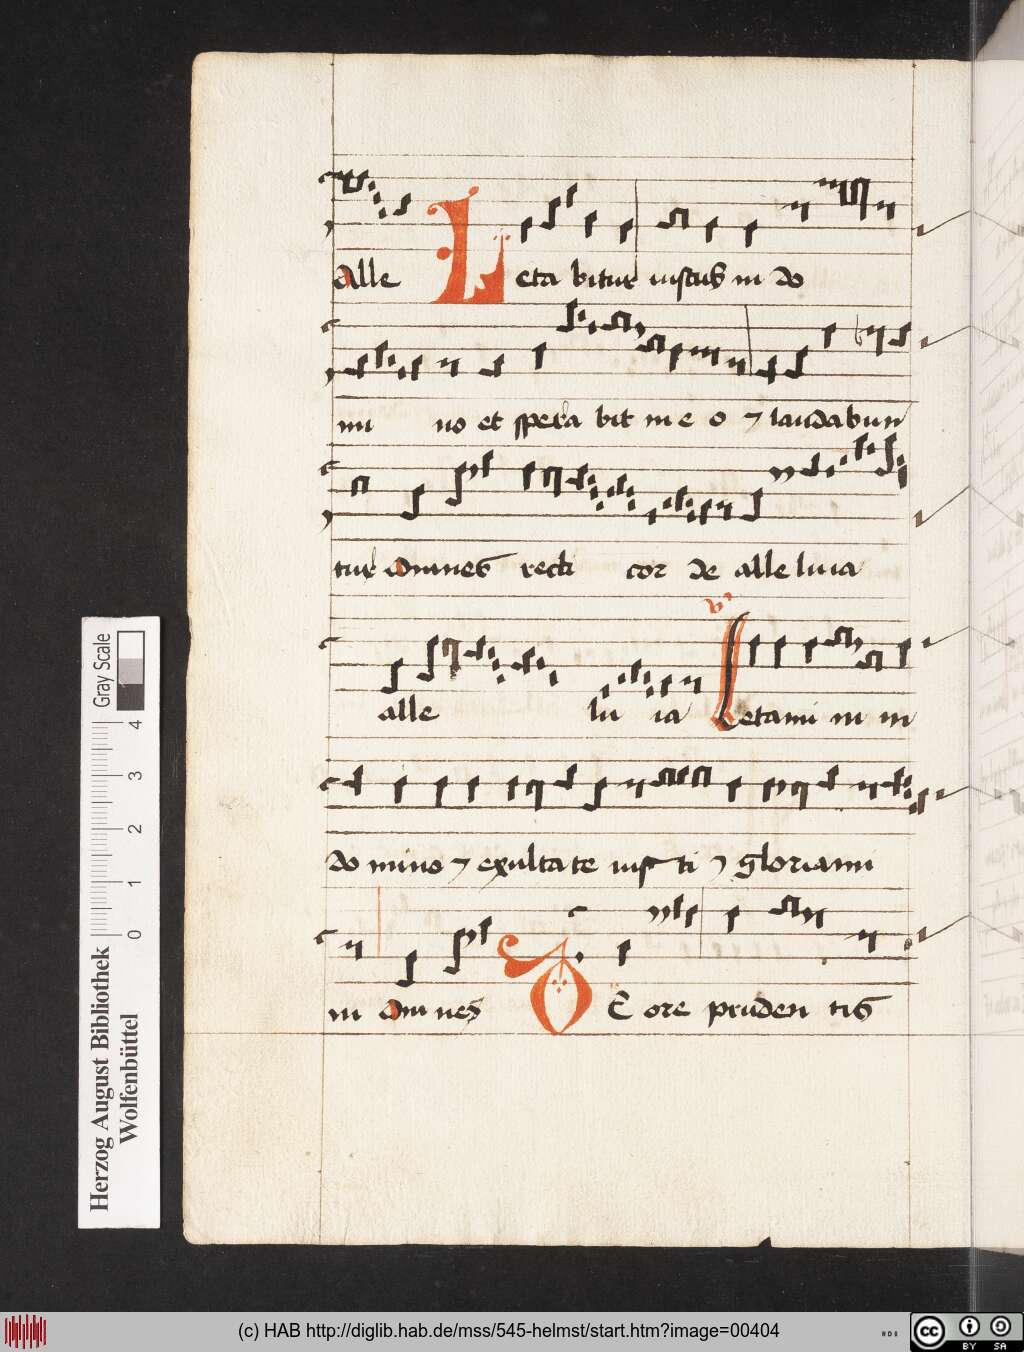 Alle Leta bitur iustus in do
mi no et spera bit in e o ⁊ laudabun
tur omnes recti cor de alle luia
alle lu ia v̛ Letami ni in
do mino ⁊ exultate ius ti ⁊ gloriami
ni om nes OE ore pruden tis
Gray Scale
4
3
2
1
0
Herzog August Bibliothek
Wolfenbüttel
(c) HAB http://diglib.hab.de/mss/545-helmst/start.htm?image=00404
cc BY SA